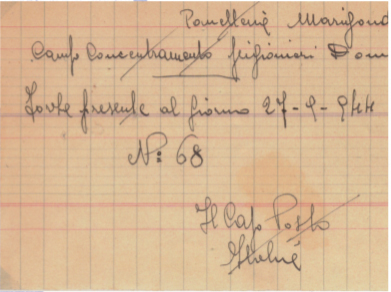 Panetteria Marigond
Campo Concentramento prigionieri Dom
Forte presente al giorno 27-9-944
N: 68
Il Capo Posto